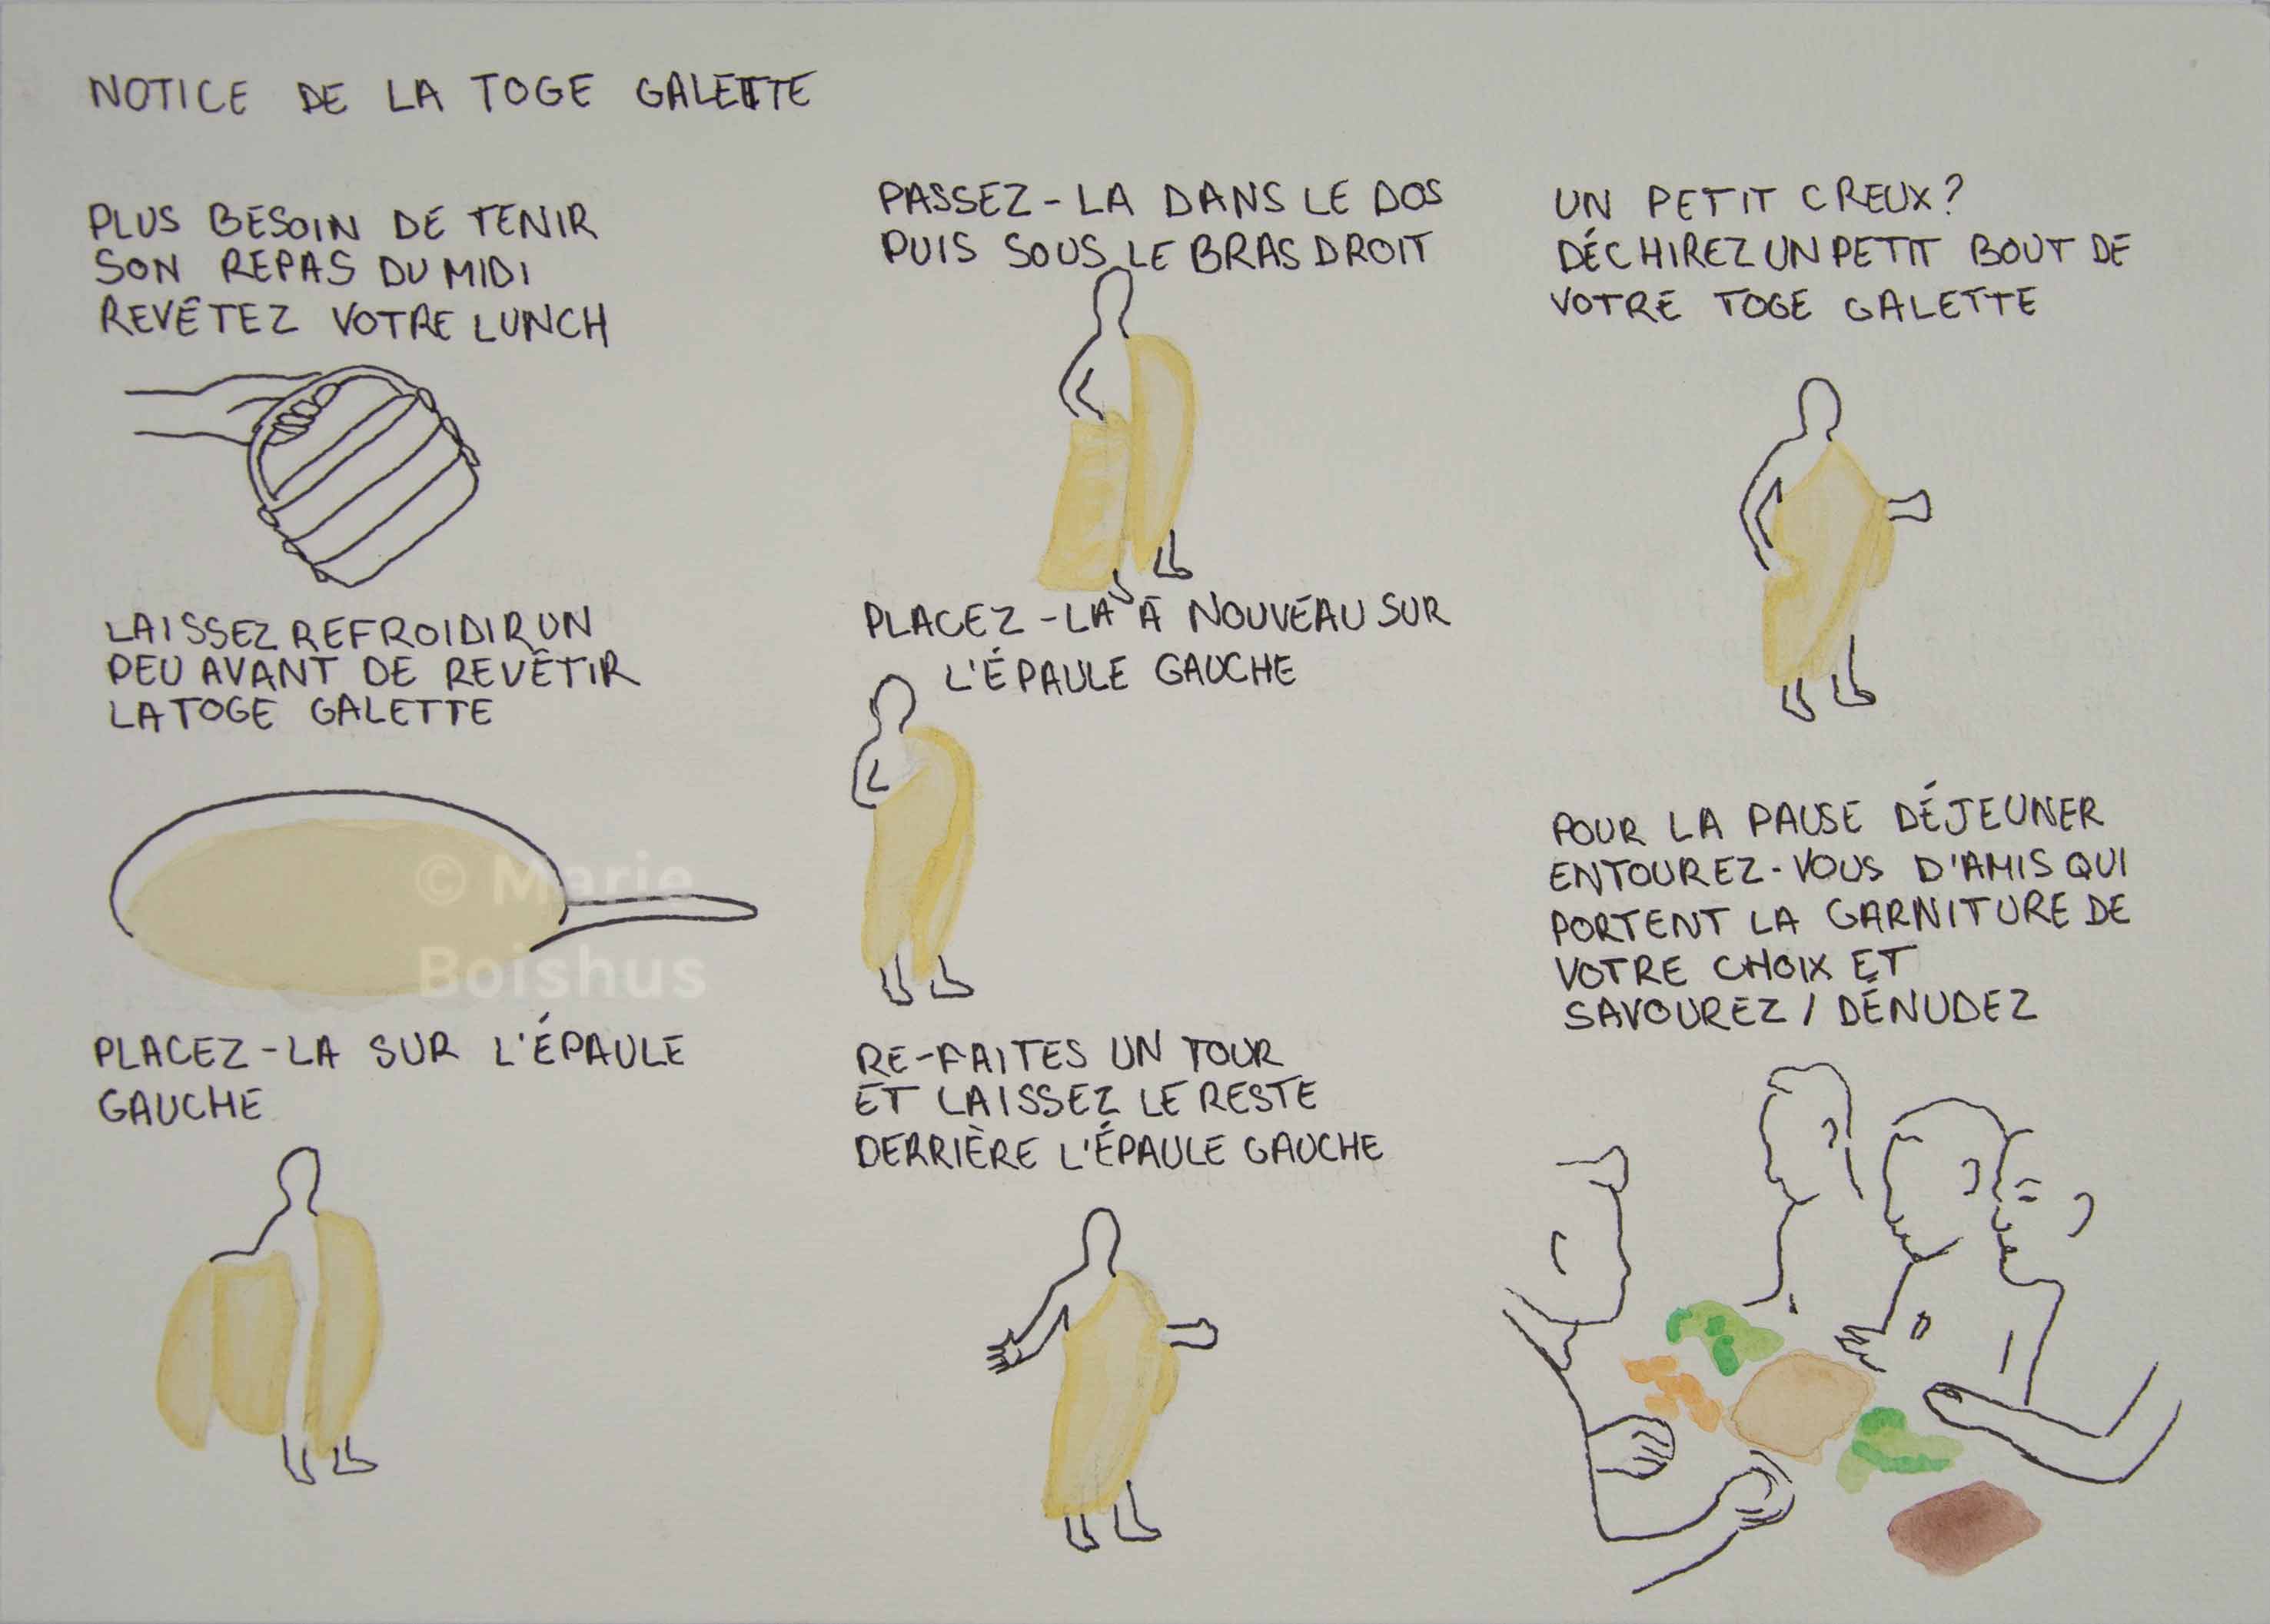 NOTICE DE LA TOGE GALETTE
PLUS BESOIN DE TENIR
SON REPAS DU MIDI
REVÊTEZ VOTRE LUNCH
LAISSEZ REFROIDIR UN
PEU AVANT DE REVÊTIR
LA TOGE GALETTE
© Marie
Boishus
PLACEZ-LA SUR L'ÉPAULE
GAUCHE
PASSEZ-LA DANS LE DOS
PUIS SOUS LE BRAS DROIT
PLACEZ-LA À NOUVEAU SUR
L'ÉPAULE GAUCHE
RE-FAITES UN TOUR
ET LAISSEZ LE RESTE
DERRIÈRE L'ÉPAULE GAUCHE
UN PETIT CREUX?
DÉCHIREZ UN PETIT BOUT DE
VOTRE TOGE GALETTE
POUR LA PAUSE DÉJEUNER
ENTOUREZ-VOUS D'AMIS QUI
PORTENT LA GARNITURE DE
VOTRE CHOIX ET
SAVOUREZ / DÉNUDEZ